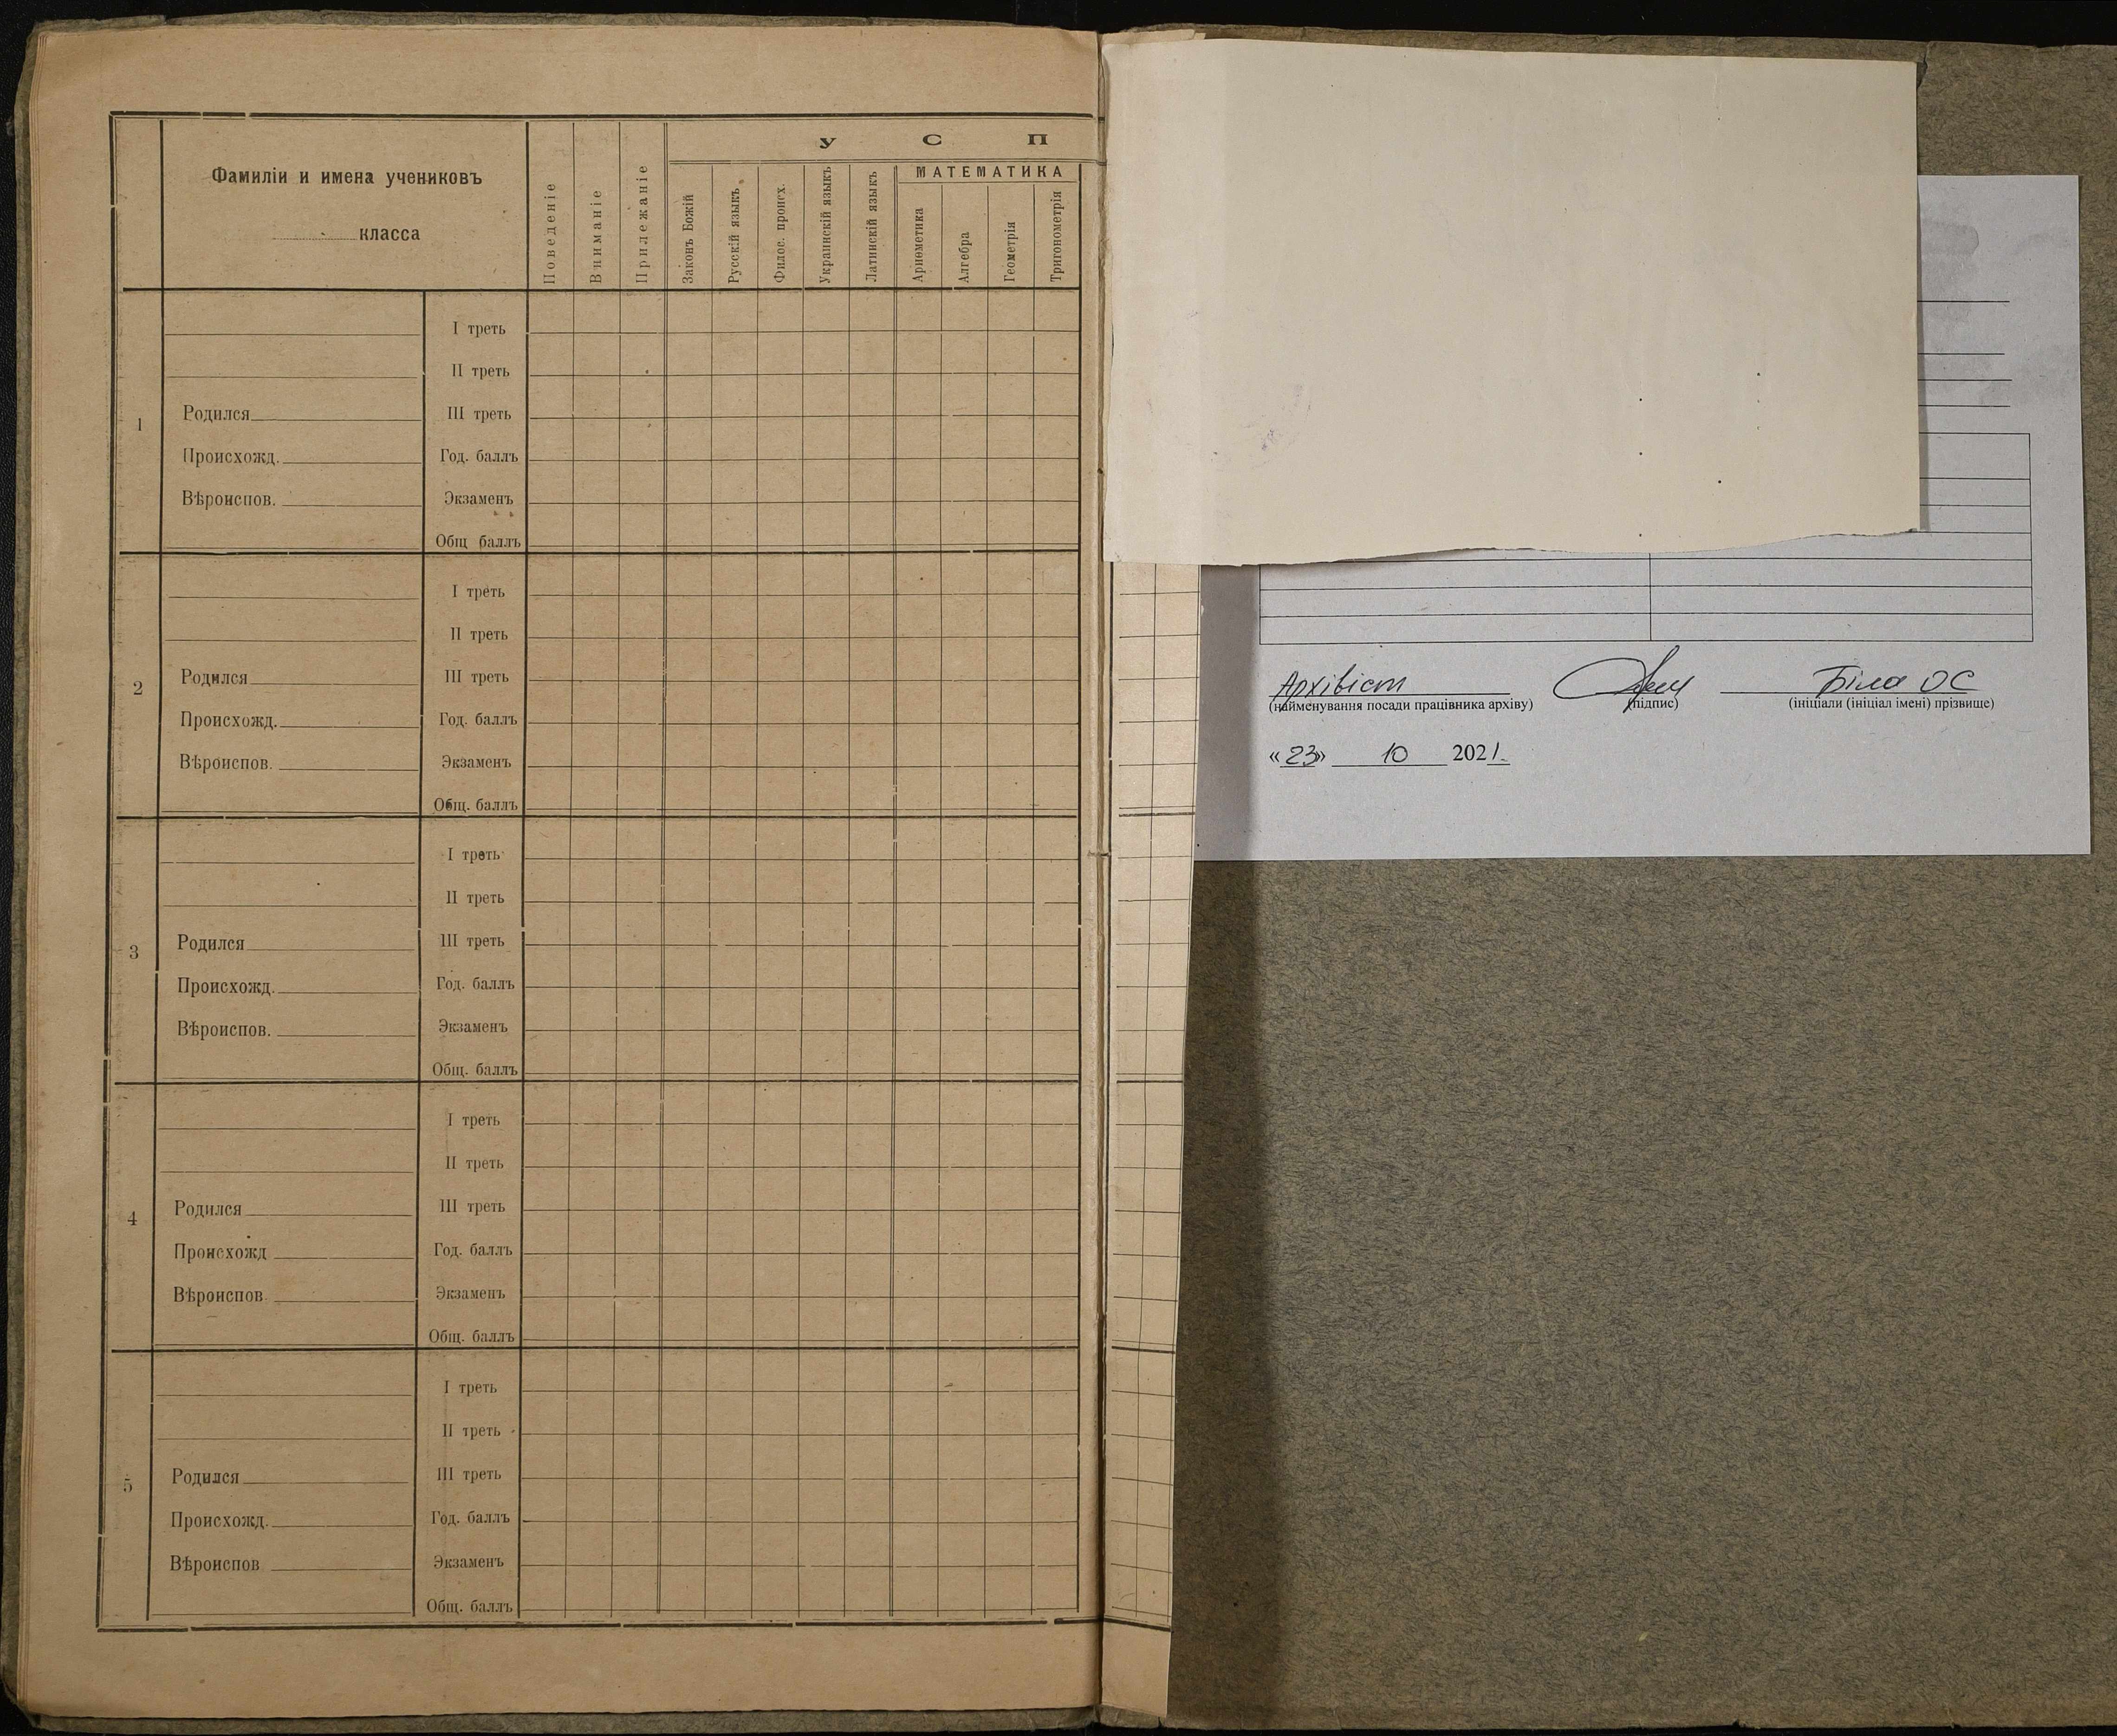 Фамиліи и имена учениковъ
класса
Поведеніе
Вниманіе
Прилежаніе
У С П
Законъ Божій
Русскій языкъ
Филос. проист.
Украинскій языкъ
Латинскій языкъ
МАТЕМАТИКА
Ариѳметика
Алгебра
Геометрія
Тригонометрія
1
I треть
II треть
Родился III треть
Происхожд. Год. баллъ
Вѣроиспов. Экзаменъ
Общ баллъ
2
I треть
II треть
Родился III треть
Происхожд. Год. баллъ
Вѣроиспов. Экзаменъ
Общ. баллъ
3
I треть
II треть
Родился III треть
Происхожд. Год. баллъ
Вѣроиспов. Экзаменъ
Общ. баллъ
4
I треть
II треть
Родился III треть
Происхожд Год. баллъ
Вѣроиспов Экзаменъ
Общ. баллъ
5
I треть
II треть
Родился III треть
Происхожд. Год. баллъ
Вѣроиспов Экзаменъ
Общ. баллъ
Архівіст Біла ОС
(найменування посади працівника архіву) (підпис) (ініціали (ініціал імені) прізвище)
«23» 10 2021.